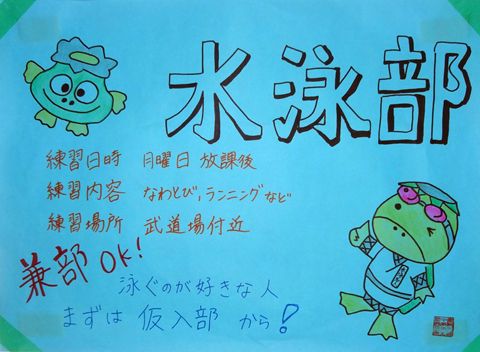 水泳部
練習日時 月曜日 放課後
練習内容 なわとび,ランニングなど
練習場所 武道場付近
兼部OK!
泳ぐのが好きな人
まずは 仮入部 から!